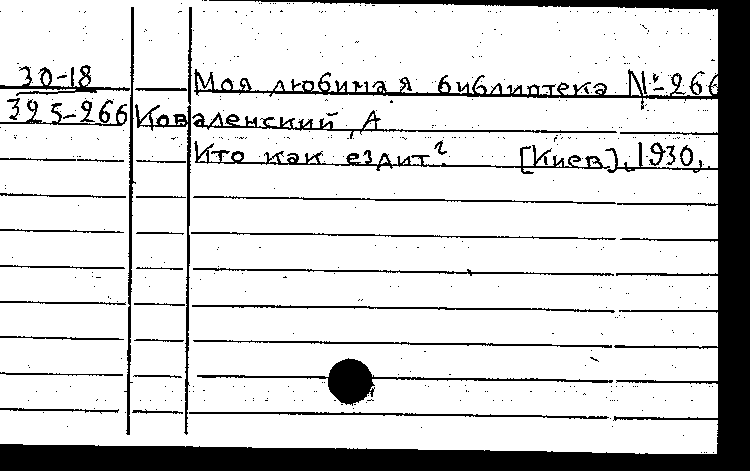 30-18 Моя любимая библиотека № 266
325-266 Коваленский, А
Кто как ездит? [Киев], 1930,